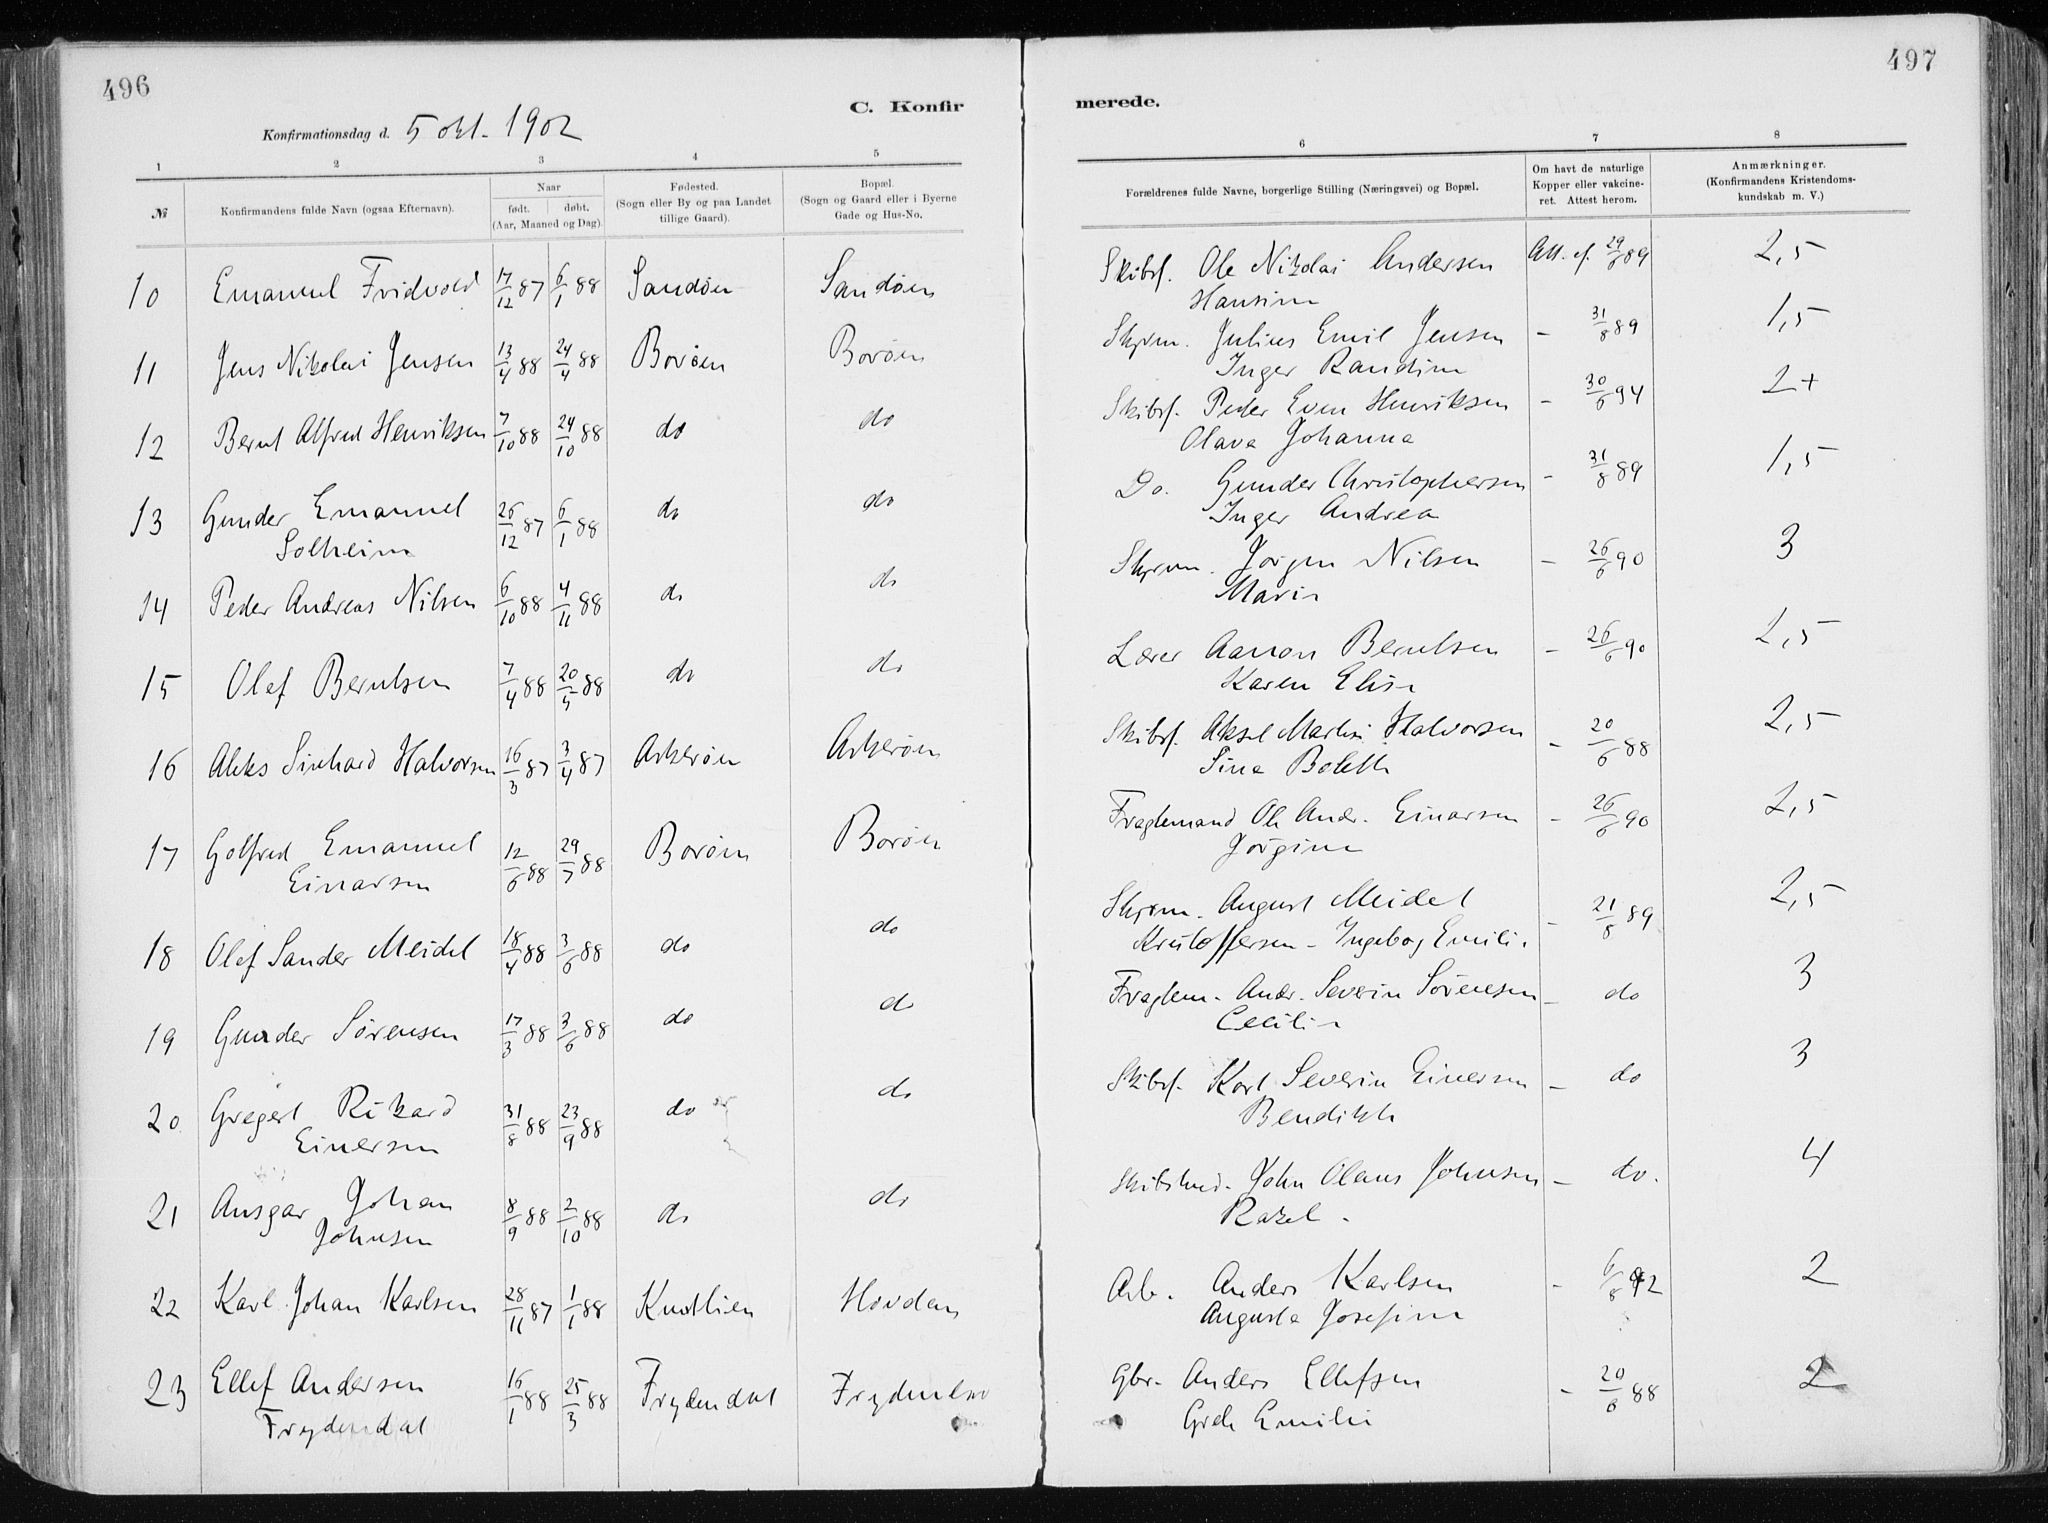 496
C. Konfir
Konfirmationsdag d. 5 okt. 1902
1 2 3 4 5
№ Konfirmandens fulde Navn (ogsaa Efternavn). Naar født. døbt. (Aar, Maaned og Dag). Fødested. (Sogn eller By og paa Landet tillige Gaard). Bopæl. (Sogn og Gaard eller i Byerne Gade og Hus-No.
10 Emanuel Fridvold 17/12 87 6/1 88 Sandøen Sandøen
11 Jens Nikolai Jensen 13/4 88 24/4 88 Borøen Borøen
12 Bernt Alfred Henriksen 7/10 88 24/10 88 do do
13 Gunder Emanuel 26/12 87 6/1 88 do do
Solheim
14 Peder Andreas Nilsen 6/10 88 4/11 88 do do
15 Olaf Berntsen 7/4 88 20/5 88 do do
16 Aleks Sinhard Halvorsen 16/3 87 3/4 87 Askerøen Askerøen
17 Golfred Emanuel 12/6 88 29/7 88 Borøen Borøen
Einarsen
18 Olaf Sander Meidel 18/4 88 3/6 88 do do
19 Gunder Sørensen 17/3 88 3/6 88 do do
20 Gregert Rikard 31/8 88 23/9 88 do do
Einersen
21 Ansgar Johan 8/9 88 2/10 88 do do
Johnsen
22 Karl Johan Karlsen 28/11 87 1/1 88 Knutlien Hovdan
23 Ellef Andersen 16/1 88 25/3 88 Frydendal Frydendal
Frydendal
497
merede.
6 7 8
Forældrenes fulde Navne, borgerlige Stilling (Næringsvei) og Bopæl. Om havt de naturlige Kopper eller vakcineret. Attest herom. Anmærkninger. (Konfirmandens Kristendomskundskab m. V.)
Skibsf. Ole Nikolai Andersen Att. af 29/6 89 2,5
Hansine
Skprm. Julius Emil Jensen - 31/8 89 1,5
Inger Randine
Skibsf. Peder Even Henriksen - 30/6 94 2+
Olava Johanna
Do. Gunder Christophersen - 31/8 89 1,5
Inger Andrea
Skprm. Jørgen Nilsen - 26/6 90 3
Marie
Lærer Aanon Berntsen - 26/6 90 2,5
Karen Elise
Skibsf. Aksel Martin Halvorsen - 20/6 88 2,5
Sina Boleth
Fragtemand Ole Andr. Einarsen - 26/6 90 2,5
Jørgine
Skprm. August Meidel
Kristoffersen - Ingeborg Emilie - 21/8 89 2,5
Fragtem. Andr. Severin Sørensen - do 3
Cecilie
Skibsf. Karl Severin Einersen - do 3
Bendikte
Skibstmd. John Olaus Johnsen - do. 4
Rakel.
Arb. Anders Karlsen - 6/8 92 2
Augusta Josefine
Gbr. Anders Ellefsen - 20/6 88 2
Grete Emilie